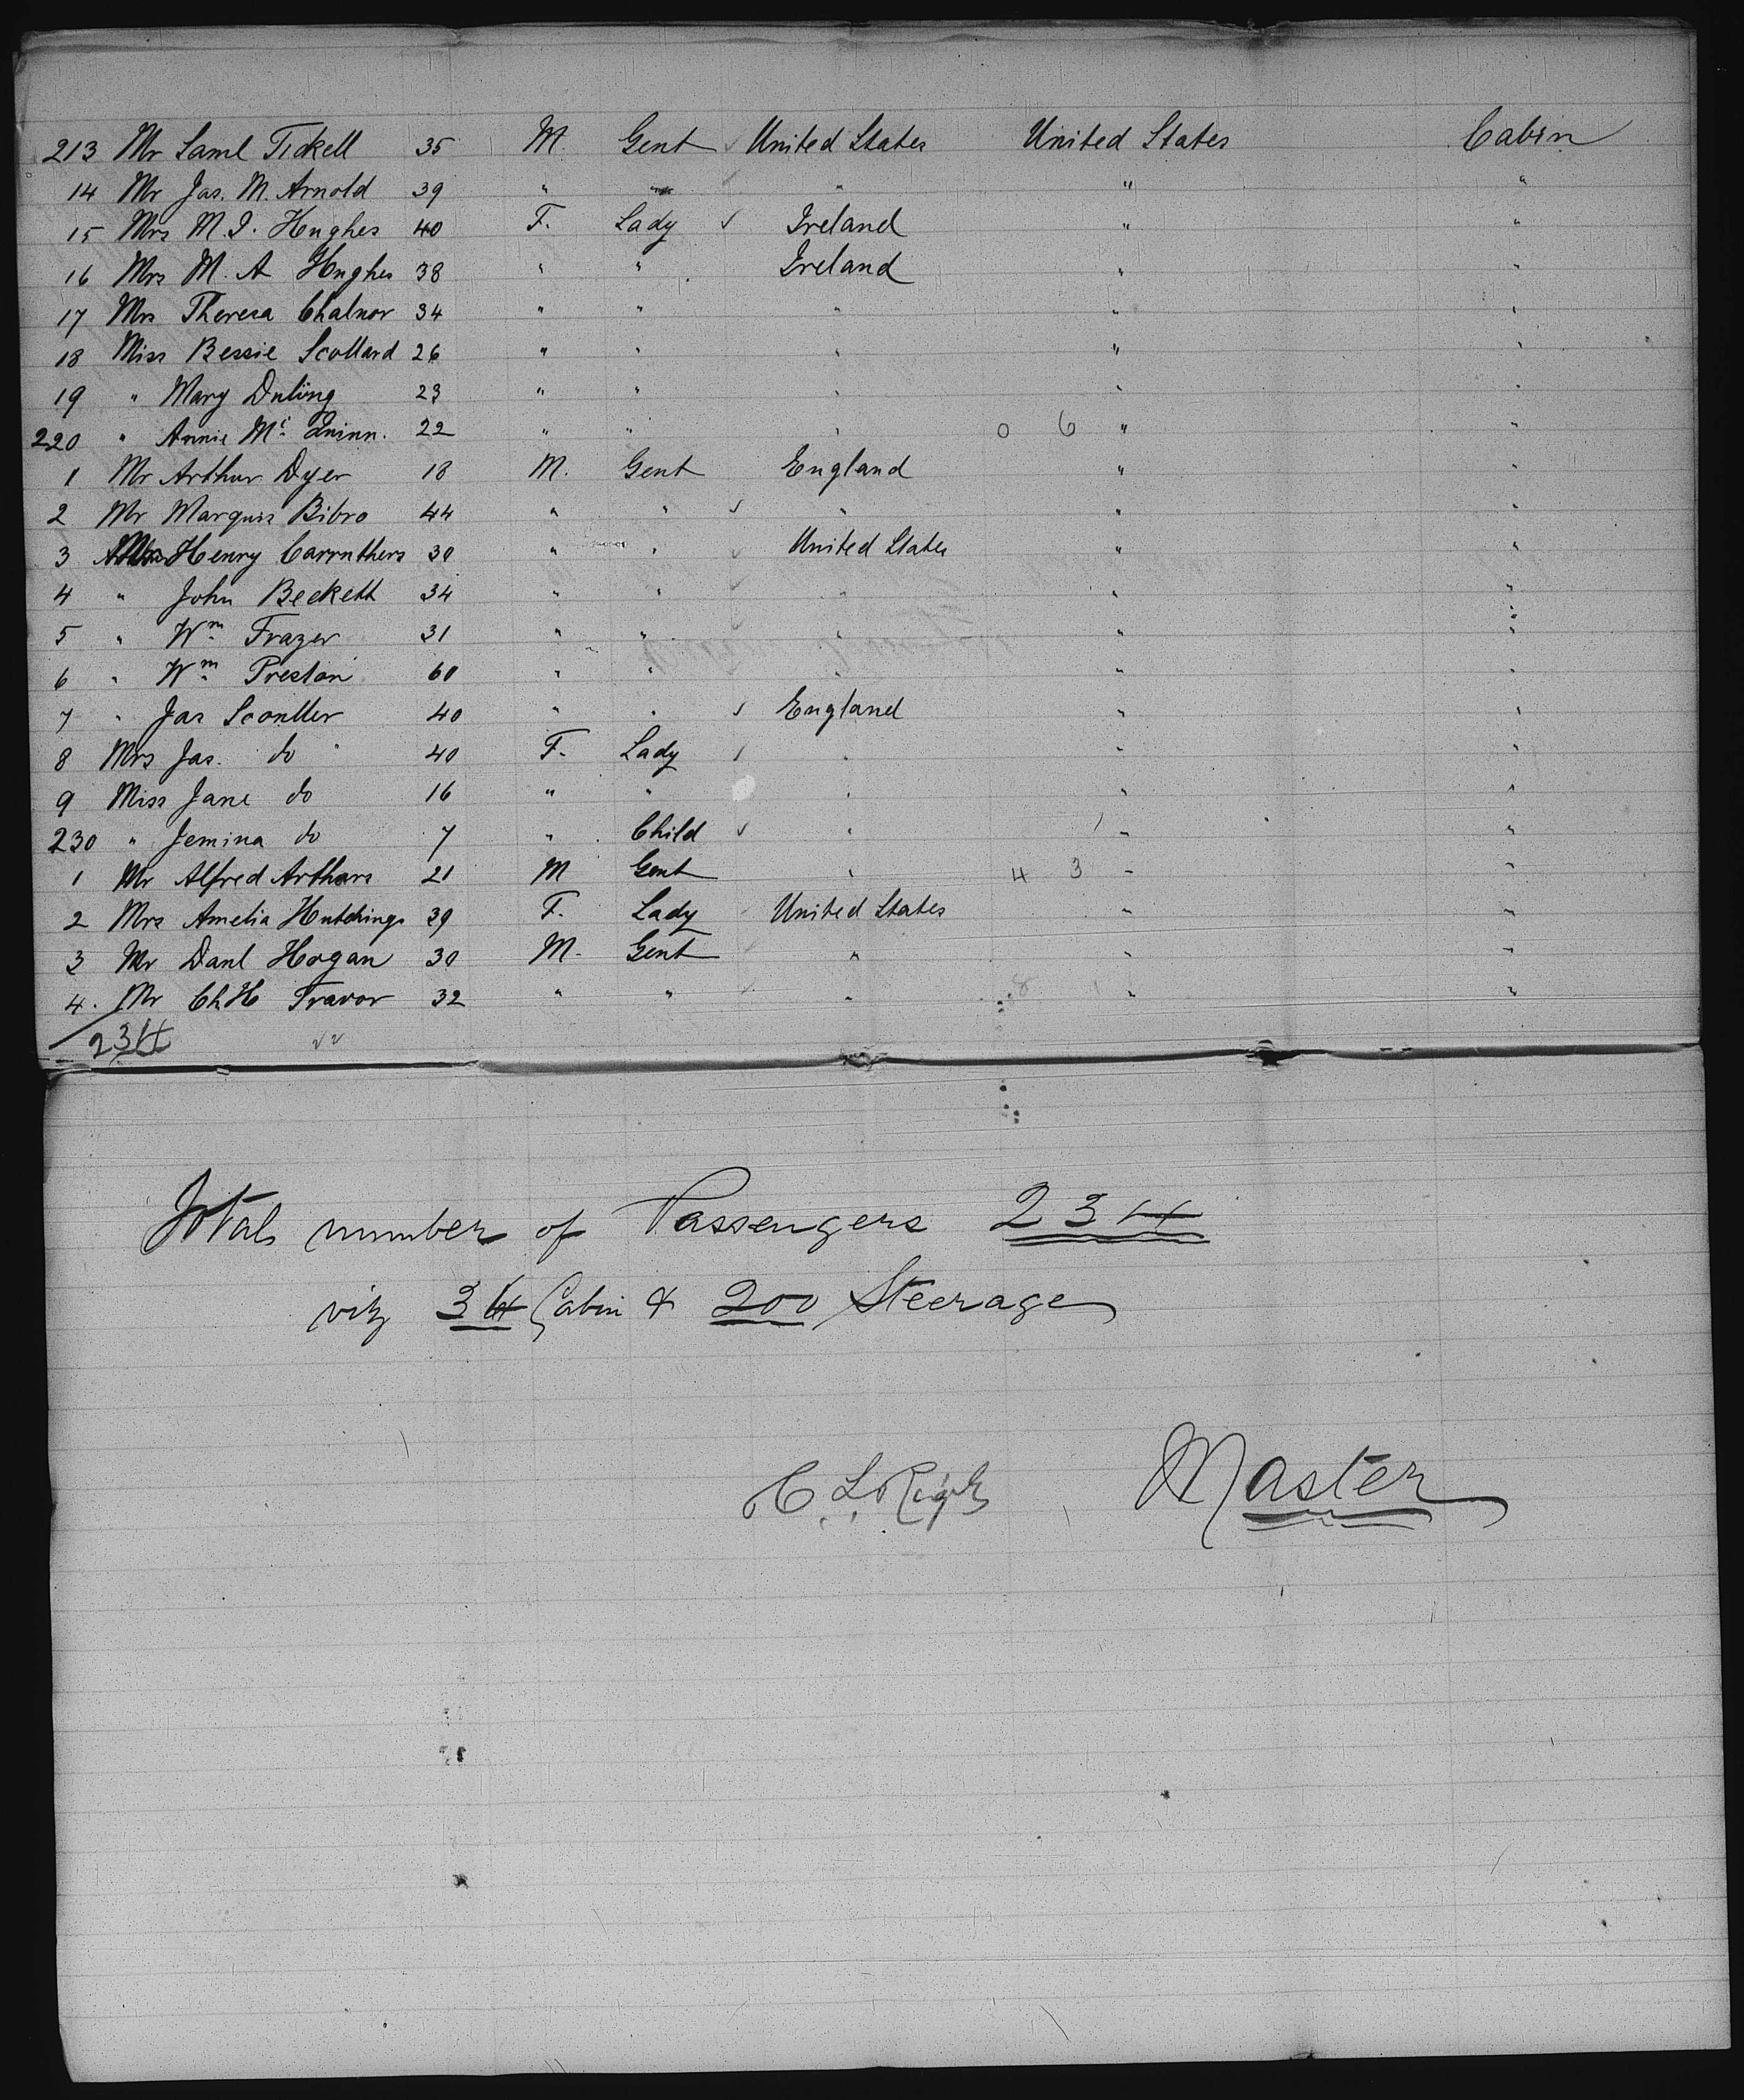 213 Mr Saml Tickell 35 M. Gent ✓ United States United States Cabin
14 Mr Jas. M. Arnold 39 " " " " "
15 Mrs M. I. Hughes 40 F. Lady ✓ Ireland " "
16 Mrs M. A Hughes 38 " " Ireland " "
17 Mrs Theresa Chalnor 34 " " " " "
18 Miss Bessie Scollard 26 " " " " "
19 " Mary Duling 23 " " " " "
220 " Annie Mc Quinn. 22 " " " 0 6 " "
1 Mr Arthur Dyer 18 M. Gent England " "
2 Mr Marquis Bibro 44 " " ✓ " " "
3 Henry Carruthers 30 " " ✓ United States " "
4 " John Beckett 34 " " ✓ " " "
5 " Wm Frazer 31 " " " " "
6 " Wm Preston 60 " " " " "
7 " Jas Scouller 40 " " ✓ England " "
8 Mrs Jas. do " 40 F. Lady ✓ " " "
9 Miss Jane do 16 " " " " "
230 " Jemina do 7 " Child ✓ " " "
1 Mr Alfred Arthars 21 M Gent " 4 3 " "
2 Mrs Amelia Hutchings 39 F. Lady United States " "
3 Mr Danl Hogan 30 M. Gent " " "
4. Mr Ch H Travor 32 " " " " "
234
Total number of Passengers 234
viz 34 Cabin & 200 Steerage
C. L. Rigby Master